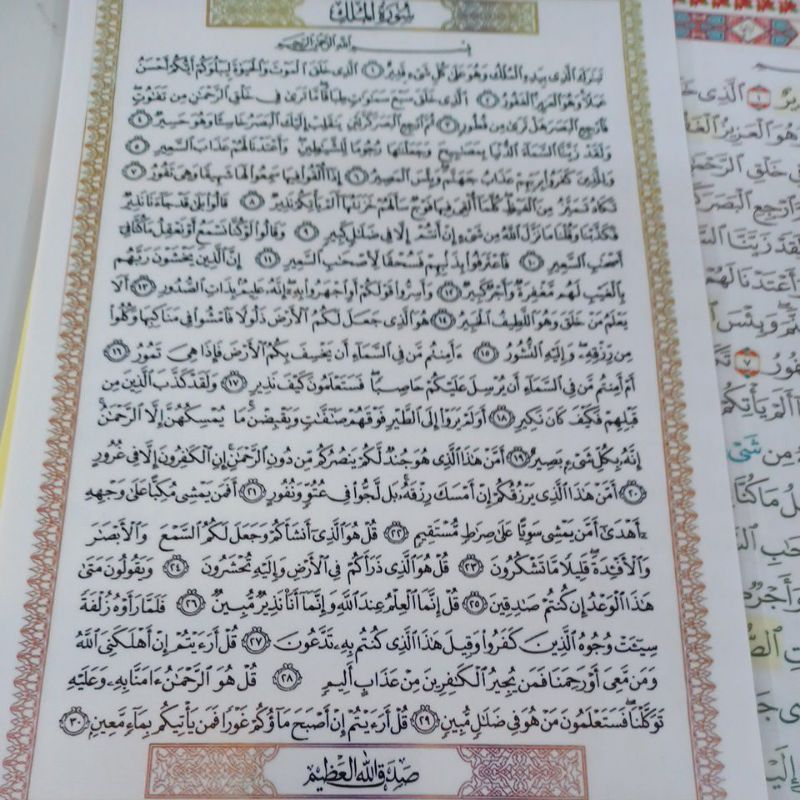 سُورَةُ المُلْكِ
بِسْمِ اللَّهِ الرَّحْمَٰنِ الرَّحِيمِ
تَبَٰرَكَ الَّذِى بِيَدِهِ الْمُلْكُ وَهُوَ عَلَىٰ كُلِّ شَىْءٍ قَدِيرٌ ١ الَّذِى خَلَقَ الْمَوْتَ وَالْحَيَوٰةَ لِيَبْلُوَكُمْ أَيُّكُمْ أَحْسَنُ
عَمَلًا وَهُوَ الْعَزِيزُ الْغَفُورُ ٢ الَّذِى خَلَقَ سَبْعَ سَمَٰوَٰتٍ طِبَاقًا مَّا تَرَىٰ فِى خَلْقِ الرَّحْمَٰنِ مِن تَفَٰوُتٍ
فَارْجِعِ الْبَصَرَ هَلْ تَرَىٰ مِن فُطُورٍ ٣ ثُمَّ ارْجِعِ الْبَصَرَ كَرَّتَيْنِ يَنقَلِبْ إِلَيْكَ الْبَصَرُ خَاسِئًا وَهُوَ حَسِيرٌ ٤
وَلَقَدْ زَيَّنَّا السَّمَآءَ الدُّنْيَا بِمَصَٰبِيحَ وَجَعَلْنَٰهَا رُجُومًا لِّلشَّيَٰطِينِ وَأَعْتَدْنَا لَهُمْ عَذَابَ السَّعِيرِ ٥
وَلِلَّذِينَ كَفَرُوا بِرَبِّهِمْ عَذَابُ جَهَنَّمَ وَبِئْسَ الْمَصِيرُ ٦ إِذَآ أُلْقُوا فِيهَا سَمِعُوا لَهَا شَهِيقًا وَهِىَ تَفُورُ ٧
تَكَادُ تَمَيَّزُ مِنَ الْغَيْظِ كُلَّمَآ أُلْقِىَ فِيهَا فَوْجٌ سَأَلَهُمْ خَزَنَتُهَآ أَلَمْ يَأْتِكُمْ نَذِيرٌ ٨ قَالُوا بَلَىٰ قَدْ جَآءَنَا نَذِيرٌ
فَكَذَّبْنَا وَقُلْنَا مَا نَزَّلَ اللَّهُ مِن شَىْءٍ إِنْ أَنتُمْ إِلَّا فِى ضَلَٰلٍ كَبِيرٍ ٩ وَقَالُوا لَوْ كُنَّا نَسْمَعُ أَوْ نَعْقِلُ مَا كُنَّا فِىٓ
أَصْحَٰبِ السَّعِيرِ ١٠ فَاعْتَرَفُوا بِذَنبِهِمْ فَسُحْقًا لِّأَصْحَٰبِ السَّعِيرِ ١١ إِنَّ الَّذِينَ يَخْشَوْنَ رَبَّهُم
بِالْغَيْبِ لَهُم مَّغْفِرَةٌ وَأَجْرٌ كَبِيرٌ ١٢ وَأَسِرُّوا قَوْلَكُمْ أَوِ اجْهَرُوا بِهِ إِنَّهُ عَلِيمٌ بِذَاتِ الصُّدُورِ ١٣ أَلَا
يَعْلَمُ مَنْ خَلَقَ وَهُوَ اللَّطِيفُ الْخَبِيرُ ١٤ هُوَ الَّذِى جَعَلَ لَكُمُ الْأَرْضَ ذَلُولًا فَامْشُوا فِى مَنَاكِبِهَا وَكُلُوا
مِن رِّزْقِهِ وَإِلَيْهِ النُّشُورُ ١٥ ءَأَمِنتُم مَّن فِى السَّمَآءِ أَن يَخْسِفَ بِكُمُ الْأَرْضَ فَإِذَا هِىَ تَمُورُ ١٦
أَمْ أَمِنتُم مَّن فِى السَّمَآءِ أَن يُرْسِلَ عَلَيْكُمْ حَاصِبًا فَسَتَعْلَمُونَ كَيْفَ نَذِيرِ ١٧ وَلَقَدْ كَذَّبَ الَّذِينَ مِن
قَبْلِهِمْ فَكَيْفَ كَانَ نَكِيرِ ١٨ أَوَلَمْ يَرَوْا إِلَى الطَّيْرِ فَوْقَهُمْ صَٰٓفَّٰتٍ وَيَقْبِضْنَ مَا يُمْسِكُهُنَّ إِلَّا الرَّحْمَٰنُ
إِنَّهُ بِكُلِّ شَىْءٍ بَصِيرٌ ١٩ أَمَّنْ هَٰذَا الَّذِى هُوَ جُندٌ لَّكُمْ يَنصُرُكُم مِّن دُونِ الرَّحْمَٰنِ إِنِ الْكَٰفِرُونَ إِلَّا فِى غُرُورٍ
٢٠ أَمَّنْ هَٰذَا الَّذِى يَرْزُقُكُمْ إِنْ أَمْسَكَ رِزْقَهُ بَل لَّجُّوا فِى عُتُوٍّ وَنُفُورٍ ٢١ أَفَمَن يَمْشِى مُكِبًّا عَلَىٰ وَجْهِهِ
أَهْدَىٰٓ أَمَّن يَمْشِى سَوِيًّا عَلَىٰ صِرَٰطٍ مُّسْتَقِيمٍ ٢٢ قُلْ هُوَ الَّذِىٓ أَنشَأَكُمْ وَجَعَلَ لَكُمُ السَّمْعَ وَالْأَبْصَٰرَ
وَالْأَفْئِدَةَ قَلِيلًا مَّا تَشْكُرُونَ ٢٣ قُلْ هُوَ الَّذِى ذَرَأَكُمْ فِى الْأَرْضِ وَإِلَيْهِ تُحْشَرُونَ ٢٤ وَيَقُولُونَ مَتَىٰ
هَٰذَا الْوَعْدُ إِن كُنتُمْ صَٰدِقِينَ ٢٥ قُلْ إِنَّمَا الْعِلْمُ عِندَ اللَّهِ وَإِنَّمَآ أَنَا نَذِيرٌ مُّبِينٌ ٢٦ فَلَمَّا رَأَوْهُ زُلْفَةً
سِيٓـَٔتْ وُجُوهُ الَّذِينَ كَفَرُوا وَقِيلَ هَٰذَا الَّذِى كُنتُم بِهِ تَدَّعُونَ ٢٧ قُلْ أَرَءَيْتُمْ إِنْ أَهْلَكَنِىَ اللَّهُ
وَمَن مَّعِىَ أَوْ رَحِمَنَا فَمَن يُجِيرُ الْكَٰفِرِينَ مِنْ عَذَابٍ أَلِيمٍ ٢٨ قُلْ هُوَ الرَّحْمَٰنُ ءَامَنَّا بِهِ وَعَلَيْهِ
تَوَكَّلْنَا فَسَتَعْلَمُونَ مَنْ هُوَ فِى ضَلَٰلٍ مُّبِينٍ ٢٩ قُلْ أَرَءَيْتُمْ إِنْ أَصْبَحَ مَآؤُكُمْ غَوْرًا فَمَن يَأْتِيكُم بِمَآءٍ مَّعِينٍ ٣٠
صَدَقَ اللَّهُ الْعَظِيمُ